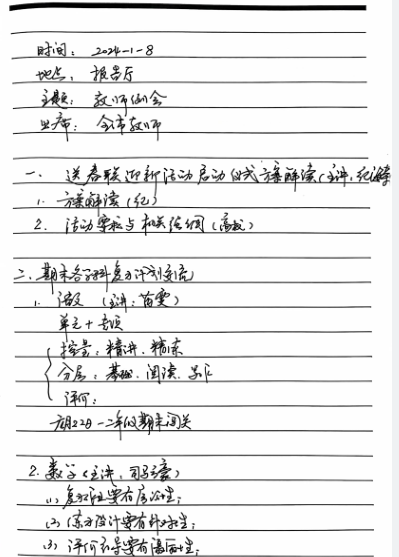 时间：2024-1-8
地点：报告厅
主题：教师例会
出席：全体教师
一、送春联迎新活动启动仪式方案解读（主讲：纪
1. 方案解读（纪）
2. 活动要求与相关
二、期末各学科复习计划交流
1. 语文（主讲：苗雯）
单元+专项
控量：精讲、精练
分层：基础、阅读、习作
评价：
一二年级期末闯关
2. 数学（主讲：司
(1) 复习课要有层次性；
(2) 练习设计要有针对性；
(3) 评价引导要有